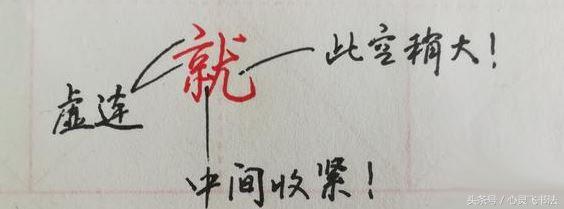 就
此空稍大！
虚连
中间收紧！
头条号/心灵飞书法